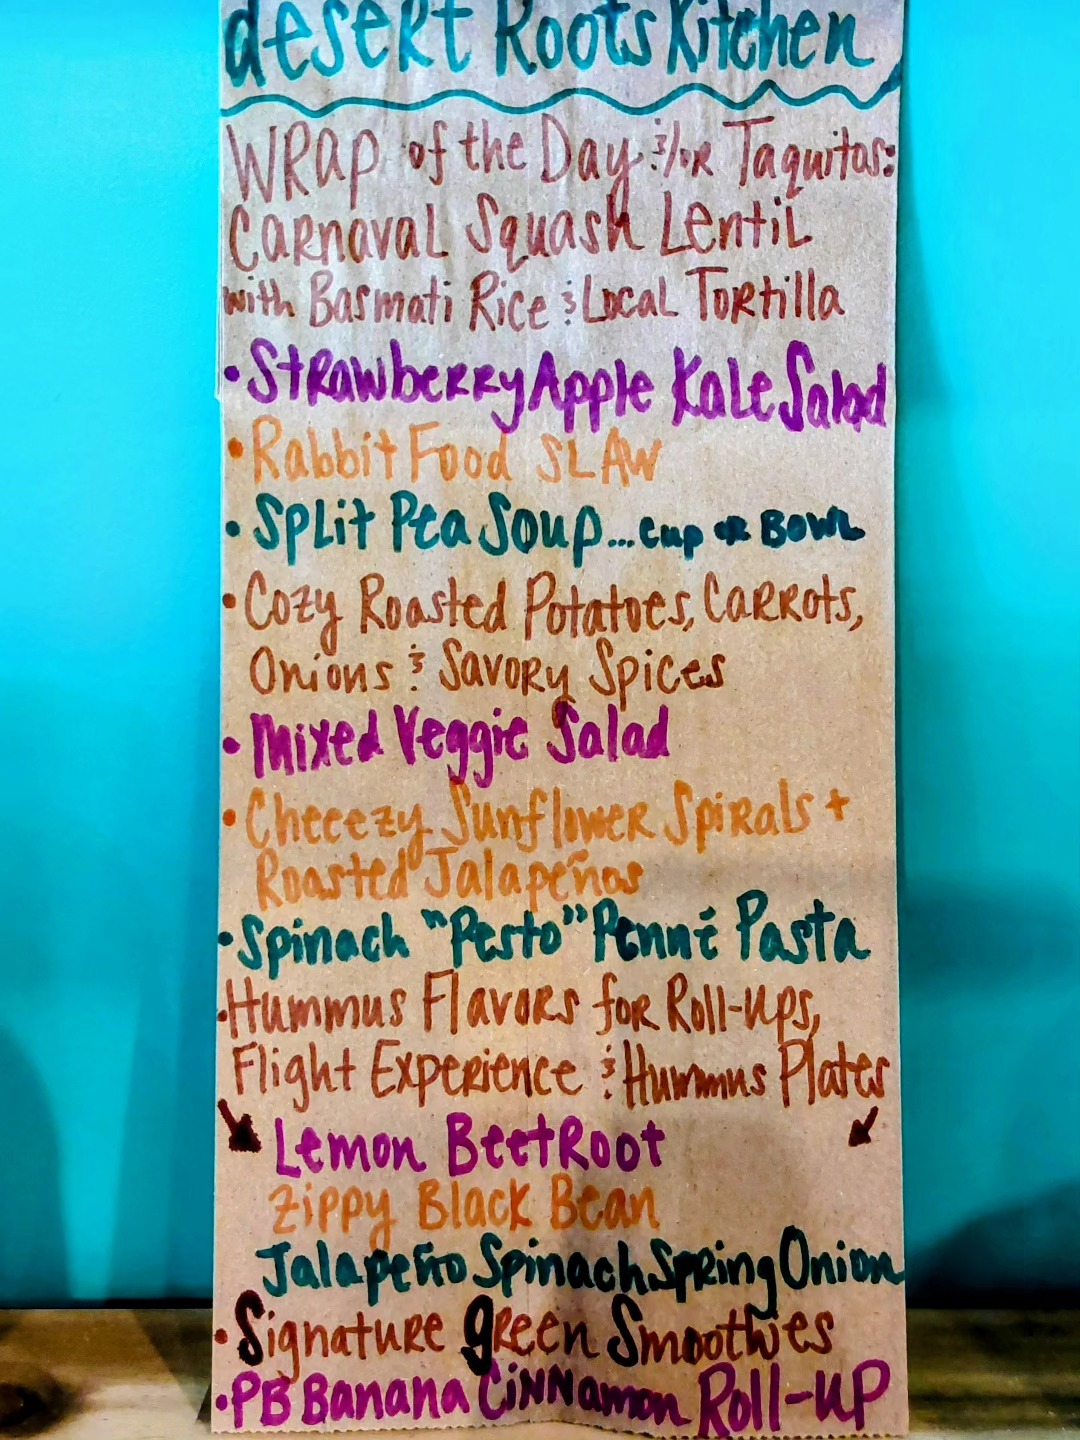 desert Roots Kitchen
Wrap of the Day &/or Taquitos:
Carnaval Squash Lentil
with Basmati Rice & Local Tortilla
• Strawberry Apple Kale Salad
• Rabbit Food SLAW
• Split Pea Soup... cup or Bowl
• Cozy Roasted Potatoes, Carrots,
Onions & Savory Spices
• Mixed Veggie Salad
• Cheeezy Sunflower Spirals +
Roasted Jalapeños
• Spinach "Pesto" Penné Pasta
• Hummus Flavors for Roll-ups,
Flight Experience & Hummus Plates
Lemon BeetRoot
Zippy Black Bean
Jalapeño Spinach Spring Onion
• Signature green Smoothies
• PB Banana Cinnamon Roll-up